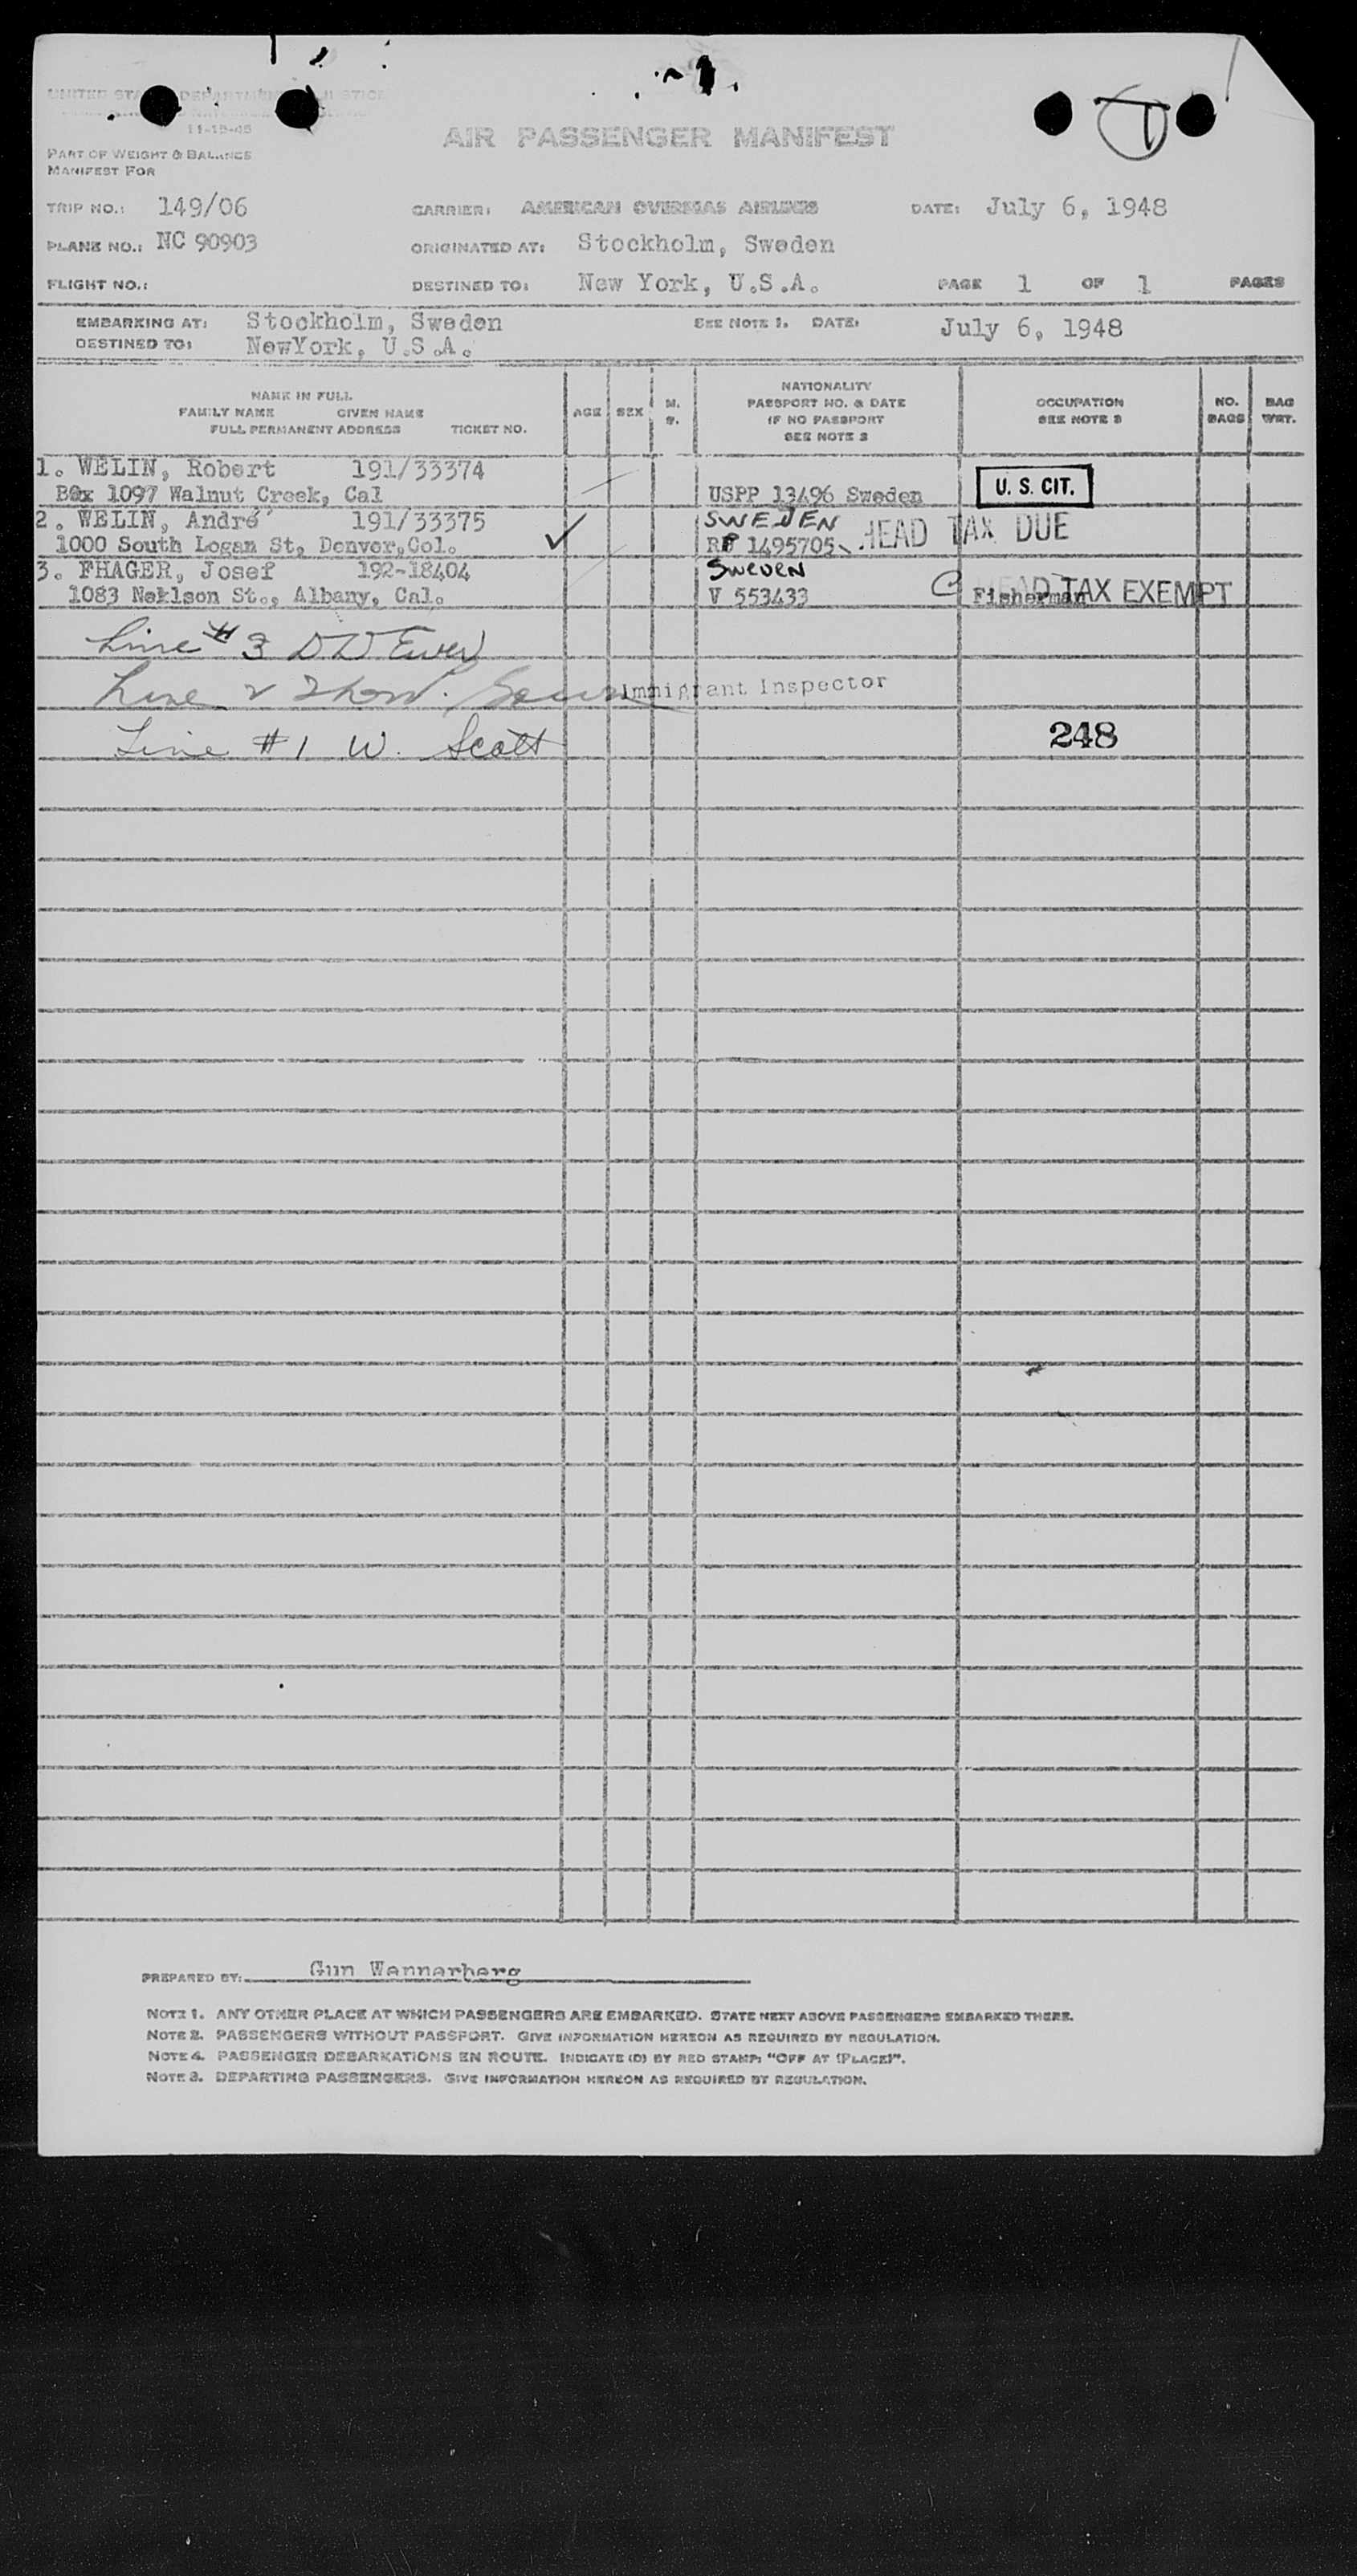 UNITED STATES DEPARTMENT JUSTICE
11-15-45
AIR PASSENGER MANIFEST
PART OF WEIGHT & BALANCE
MANIFEST FOR
TRIP NO.: 149/06 CARRIER: AMERICAN OVERSEAS AIRLINES DATE: July 6, 1948
PLANE NO.: NC 90903 ORIGINATED AT: Stockholm, Sweden
FLIGHT NO.: DESTINED TO: New York, U.S.A. PAGE 1 OF 1 PAGES
EMBARKING AT: Stockholm, Sweden SEE NOTE 1. DATE: July 6, 1948
DESTINED TO: NewYork, U.S.A.
NAME IN FULL
FAMILY NAME GIVEN NAME
FULL PERMANENT ADDRESS TICKET NO.
AGE
SEX
M.
S.
NATIONALITY
PASSPORT NO. & DATE
IF NO PASSPORT
SEE NOTE 2
OCCUPATION
SEE NOTE 3
NO.
BAGS
BAG
WGT.
1. WELIN, Robert 191/33374
Box 1097 Walnut Creek, Cal USPP 13496 Sweden U. S. CIT.
2. WELIN, André 191/33375 SWEDEN HEAD TAX DUE
1000 South Logan St, Denver,Col. RP 1495705
3. FHAGER, Josef 192-18404 SWEDEN
1083 Neklson St., Albany, Cal. V 553433 Fisherman HEAD TAX EXEMPT
Line #3
Line 2 Immigrant Inspector
Line #1 W. Scott 248
PREPARED BY: Gun Wennerberg
NOTE 1. ANY OTHER PLACE AT WHICH PASSENGERS ARE EMBARKED. STATE NEXT ABOVE PASSENGERS EMBARKED THERE.
NOTE 2. PASSENGERS WITHOUT PASSPORT. GIVE INFORMATION HEREON AS REQUIRED BY REGULATION.
NOTE 4. PASSENGER DEBARKATIONS EN ROUTE. INDICATE (D) BY RED STAMP: "OFF AT (PLACE)".
NOTE 3. DEPARTING PASSENGERS. GIVE INFORMATION HEREON AS REQUIRED BY REGULATION.